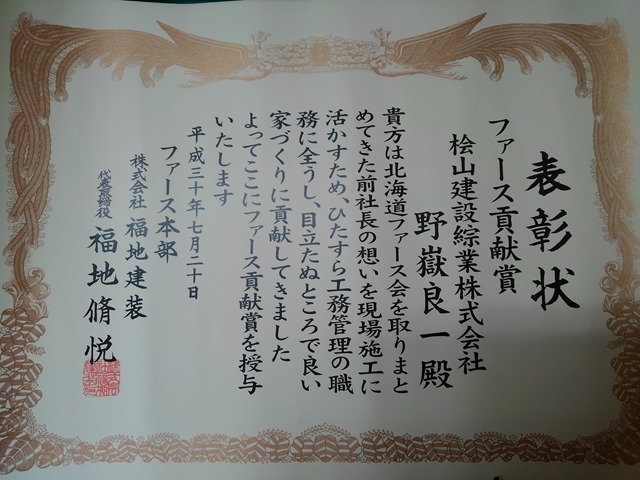 表彰状
ファース貢献賞
桧山建設綜業株式会社
野嶽良一殿
貴方は北海道ファース会を取りまと
めてきた前社長の想いを現場施工に
活かすため、ひたすら工務管理の職
務に全うし、目立たぬところで良い
家づくりに貢献してきました
よってここにファース貢献賞を授与
いたします
平成三十年七月二十日
ファース本部
株式会社 福地建装
代表取締役 福地脩悦